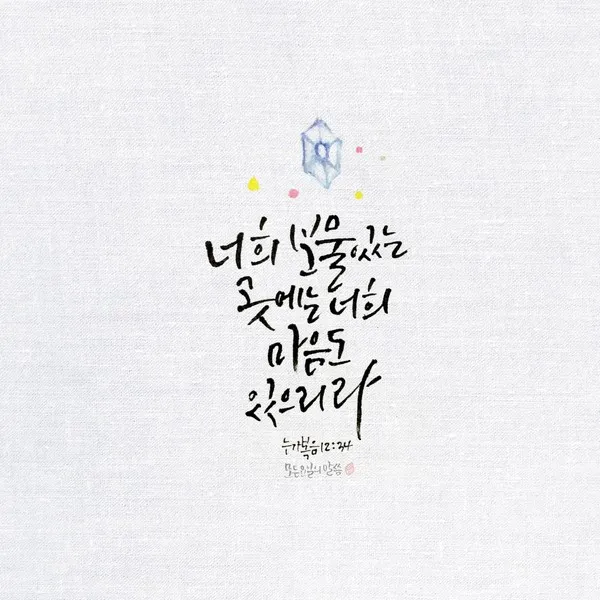 너희 보물있는
곳에는 너희
마음도
있으리라
누가복음12:34
모든요일의말씀